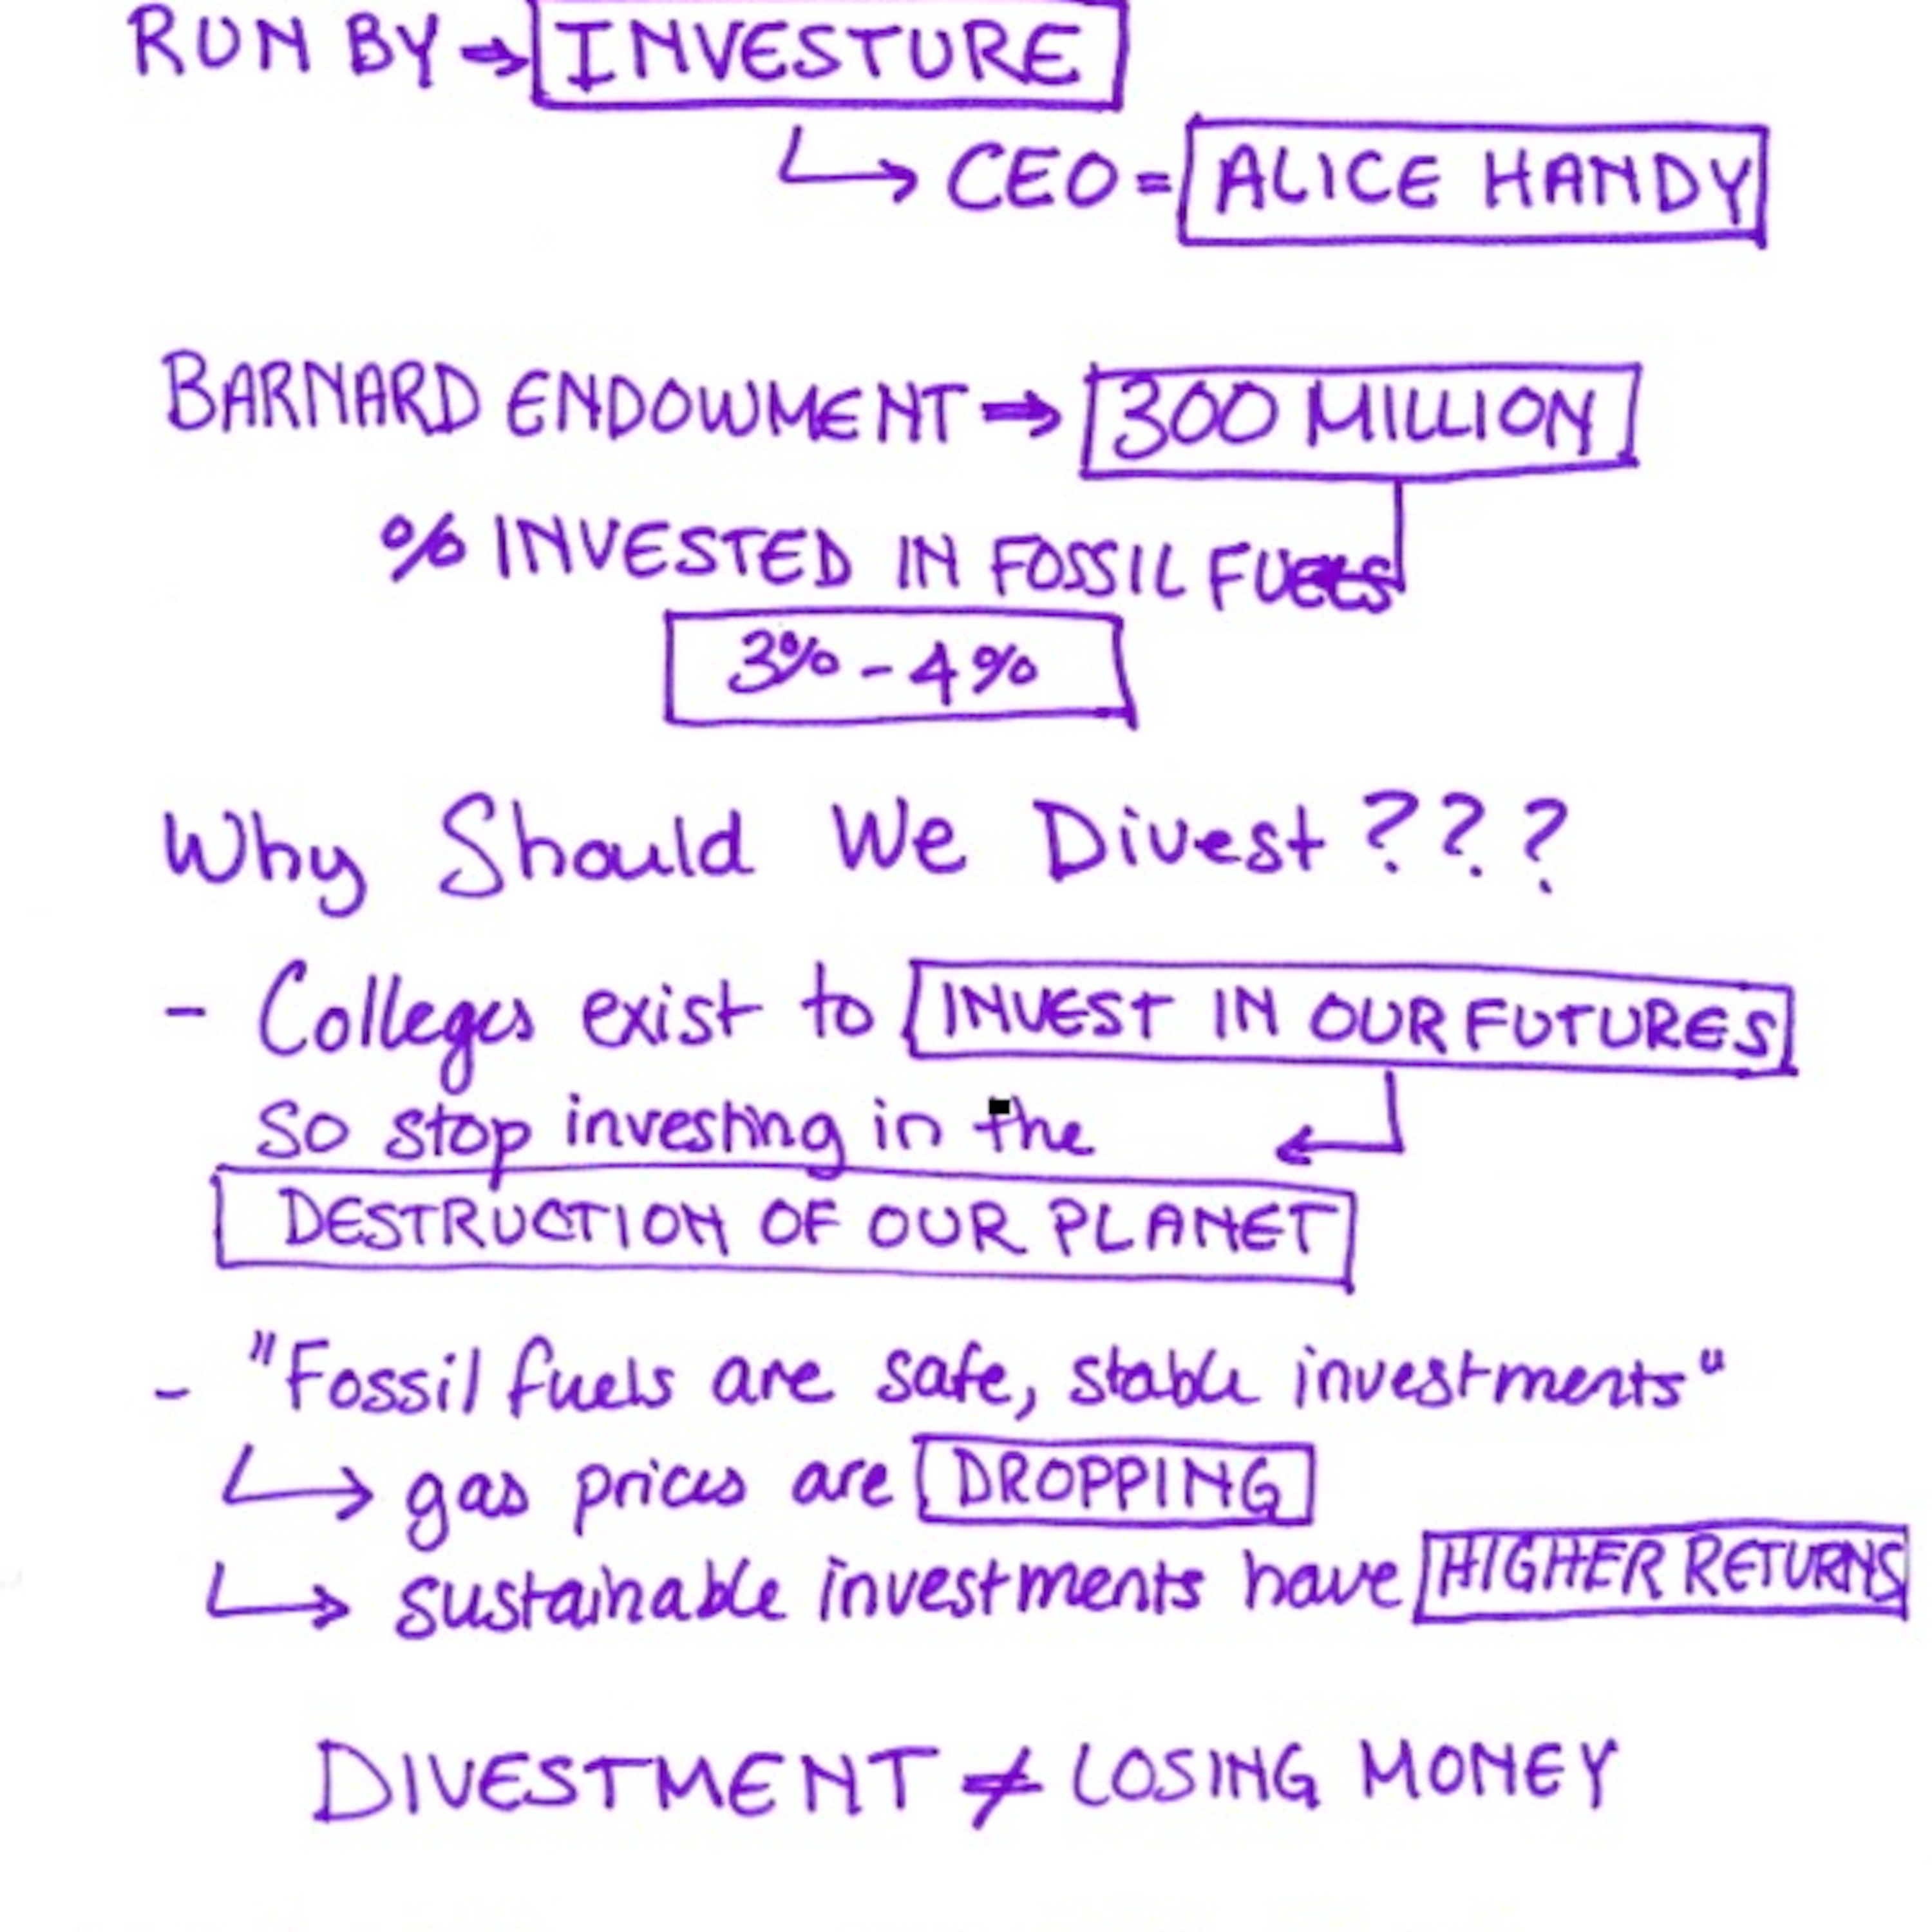 RUN BY → INVESTURE
↳ CEO = ALICE HANDY
BARNARD ENDOWMENT → 300 MILLION
% INVESTED IN FOSSIL FUELS
3% - 4%
Why Should We Divest???
- Colleges exist to INVEST IN OUR FUTURES
So stop investing in the
DESTRUCTION OF OUR PLANET
- "Fossil fuels are safe, stable investments"
↳ gas prices are DROPPING
↳ sustainable investments have HIGHER RETURNS
DIVESTMENT ≠ LOSING MONEY